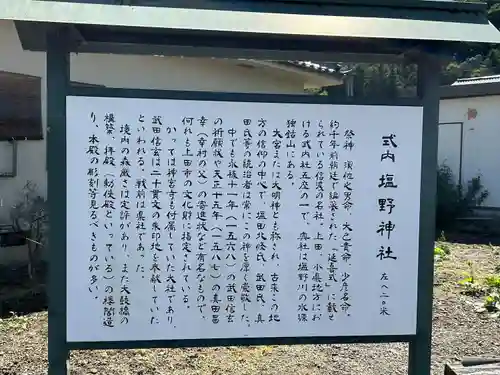 式内 塩野神社 左へ二〇米
祭神 須佐之男命、大己貴命、少彦名命。
約千年前朝廷で編纂された「延喜式」に載せ
られている信濃の名社。上田、小県地方にお
ける式内社五座の一で、奥社は塩野川の水源
独鈷山にある。
大宮または大明神とも称され、古来この地
方の信仰の中心で、塩田北條氏、武田氏、真
田氏等の統治者は常にこの神を厚く崇敬した。
中でも永禄十一年(一五六八)の武田信玄
の祈願状や天正十五年(一五八七)の真田昌
幸(幸村の父)の寄進状など有名なもので、
何れも上田市の文化財に指定されている。
かつては神宮寺も付属していた大社であり、
武田信玄は二十貫文の朱印地を奉献していた
といわれる。戦前は県社であった。
境内の森厳さは定評があり、また太鼓橋の
構築、拝殿(勅使殿といっている)の楼閣造
り、本殿の彫刻等見るべきものが多い。